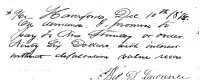 $96. Hampton Dec 10th 1878
On demand I promise to
pay to Ann Stimsey or order
Ninety Six Dollars with interest
without defalcation value recvd
Thos D. Lawrence